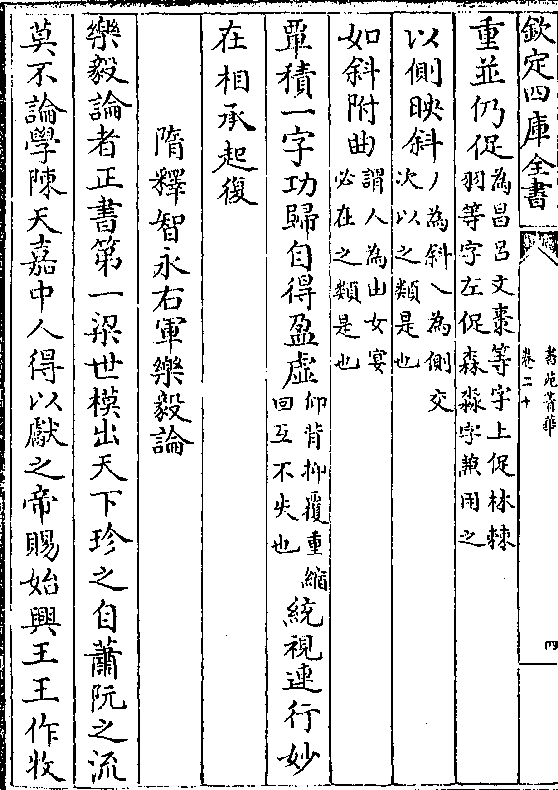 欽定四庫全書
書苑菁華
卷二十
四
重並仍促為昌呂文棗等字上促林棘
羽等字左促森淼字兼用之
以側映斜丿為斜乀為側交
次以之類是也
如斜附曲謂人為曲女安
必在之類是也
覃積一字功歸自得盈虛仰背抑覆垂縮
回互不失也統視連行妙
在相承起復
隋釋智永右軍樂毅論
樂毅論者正書第一梁世模出天下珍之自蕭阮之流
莫不論學陳天嘉中人得以獻之帝賜始興王王作牧